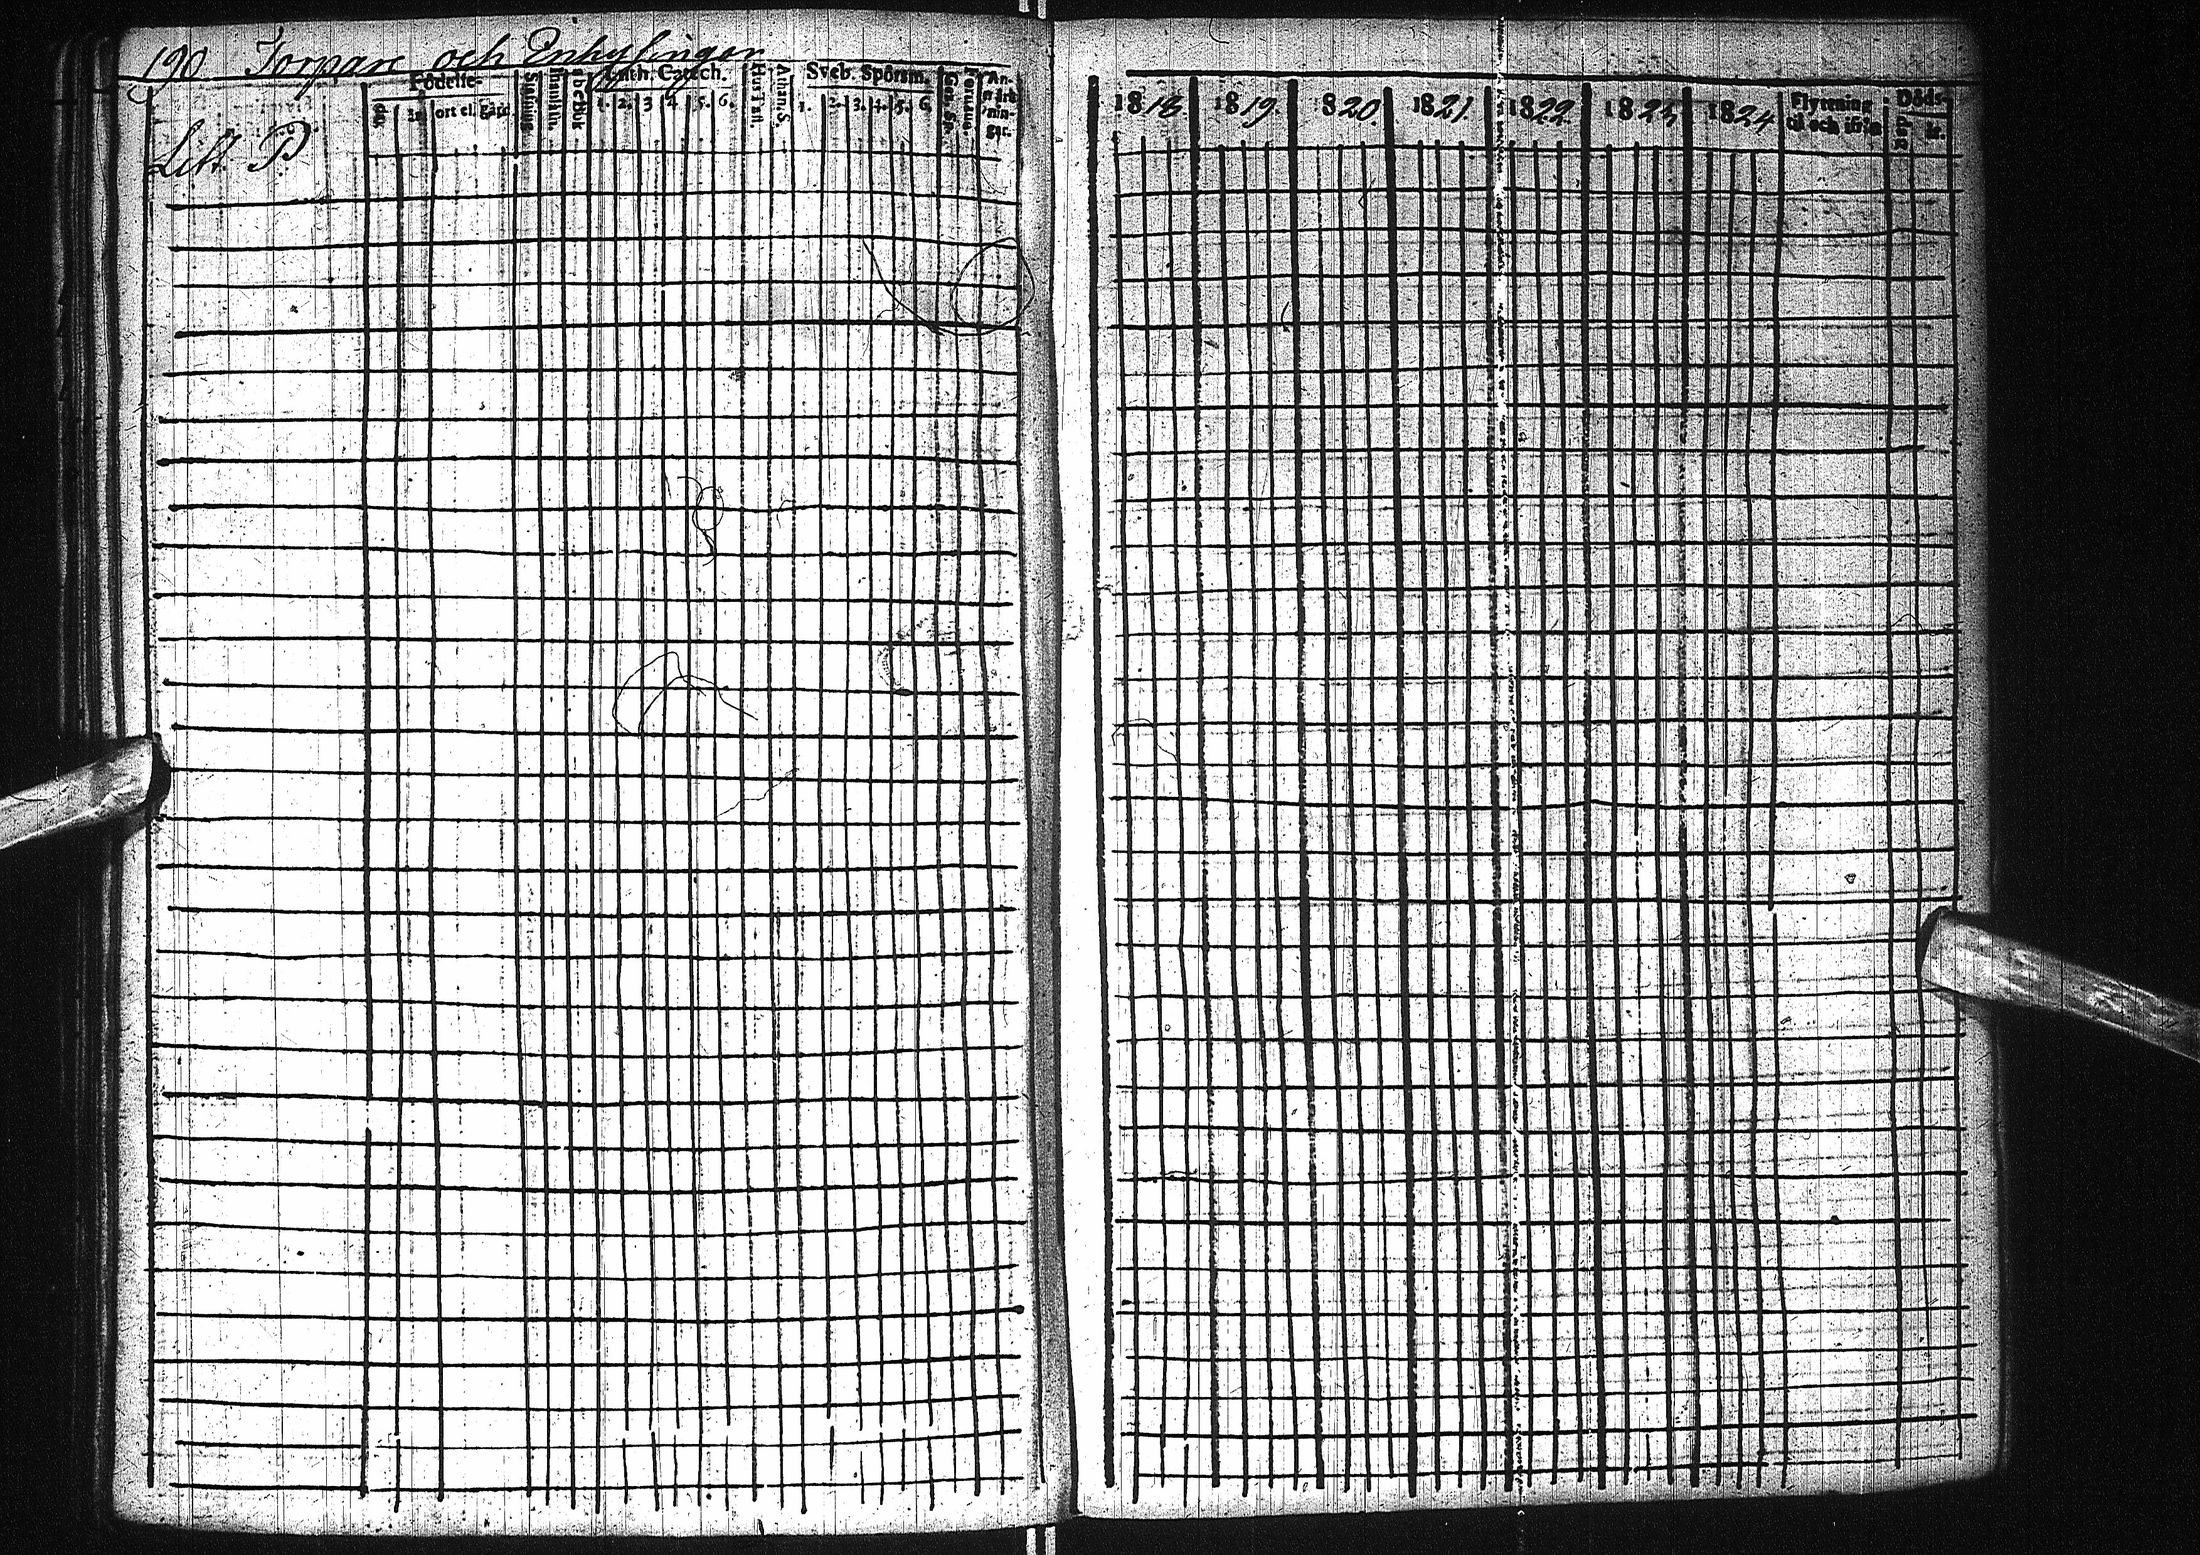 190 Torpare och Enhysingar
Litt. P.
Födelse-
dag. år. ort el. gård.
Luth. Catech.
1. 2. 3 4. 5. 6.
Hustafl.
Athan. S.
Sveb. Spörsm.
1. 2. 3. 4. 5. 6.
An-
märk-
nin-
gar.
1818. 1819. 1820. 1821. 1822. 1823 1824
Flyttning
til och ifrån
Döds-
dag år.